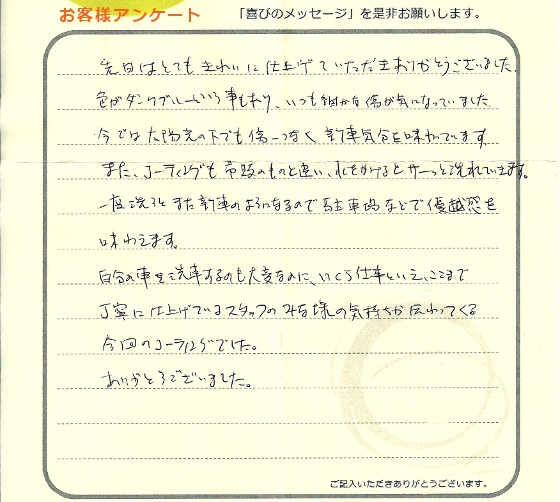 お客様アンケート 「喜びのメッセージ」を是非お願いします。
先日はとてもきれいに仕上げていただきありがとうございました。
色がダークブルーという事もあり、いつも細かな傷が気になっていました
今では太陽光の下でも傷一つなく新車気分を味わっています。
また、コーティングも市販のものと違い、水をかけるとサーっと流れていきます。
一度洗うとまた新車のようになるので駐車場などで優越感を
味わえます。
自分の車を洗車するのも大変なのに、いくら仕事といえ、ここまで
丁寧に仕上げているスタッフのみな様の気持ちが伝わってくる
今回のコーティングでした。
ありがとうございました。
ご記入いただきありがとうございます。